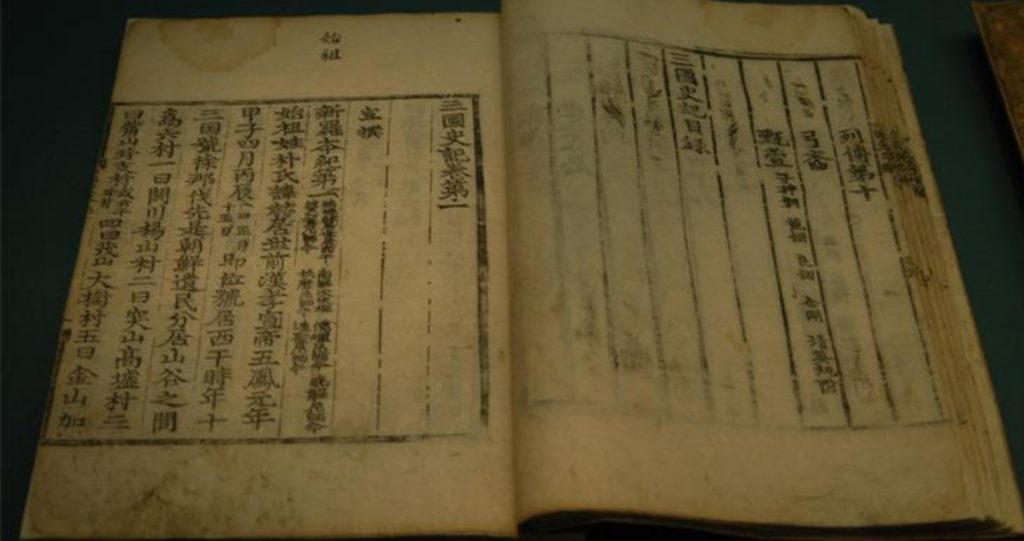 列傳第十
弓裔
甄萱 子神劒 龍劒 良劒 金剛 英規附
三國史記目錄
始祖
三國史記卷第一
宣撰
新羅本紀第一
始祖姓朴氏諱赫居世前漢孝宣帝五鳳元年
甲子四月丙辰一曰正月十五日即位號居西干時年十
三國號徐那伐先是朝鮮遺民分居山谷之間
爲六村一曰閼川楊山村二曰突山高墟村三
曰觜山珍支村或云干珍村四曰茂山大樹村五曰金山加